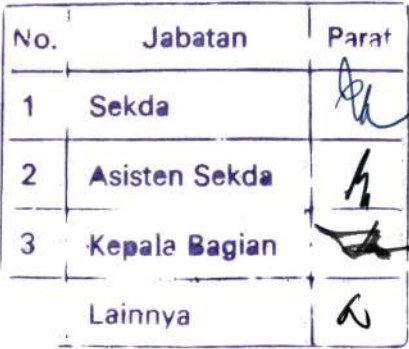 No. Jabatan Parat
1 Sekda
2 Asisten Sekda
3 Kepala Bagian
Lainnya